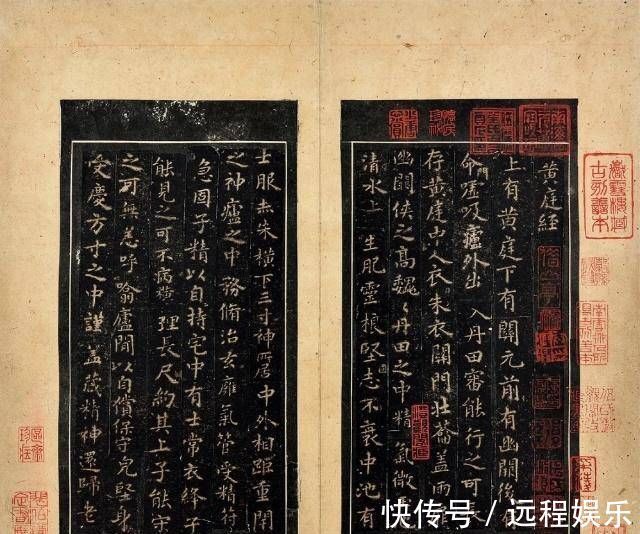 黃庭經
上有黃庭下有關元前有幽闕後
命門噓吸廬外出入丹田審能行之可長
存黃庭中人衣朱衣關門壯蘥蓋兩扉
幽闕俠之高巍巍丹田之中精氣微
清水上生肥靈根堅志不衰中池有
士服赤朱橫下三寸神所居中外相距重閉
之神廬之中務脩治玄膺氣管受精符
急固子精以自持宅中有士常衣絳子
能見之可不病橫理長尺約其上子能守
之可無恙呼噏廬間以自償保守完堅身
受慶方寸之中謹蓋藏精神還歸老
快传号 / 远程娱乐